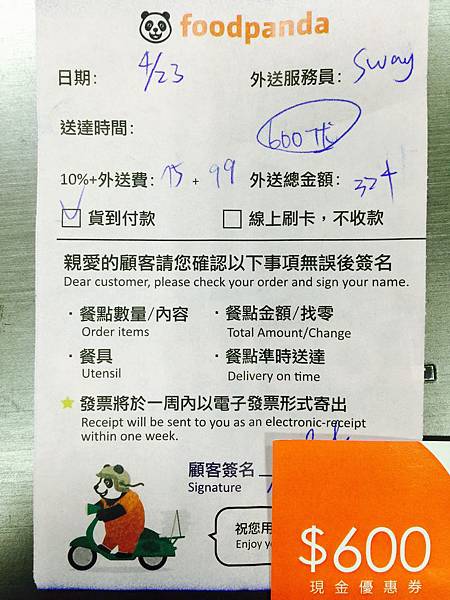 foodpanda
日期: 4/23 外送服務員: Sway
送達時間: 600 代
10%+外送費: 75 + 99 外送總金額: 324
貨到付款 線上刷卡，不收款
親愛的顧客請您確認以下事項無誤後簽名
Dear customer, please check your order and sign your name.
·餐點數量/內容 ·餐點金額/找零
Order items Total Amount/Change
·餐具 ·餐點準時送達
Utensil Delivery on time
發票將於一周內以電子發票形式寄出
Receipt will be sent to you as an electronic-receipt
within one week.
顧客簽名
Signature
祝您用
Enjoy
$600
現金優惠券